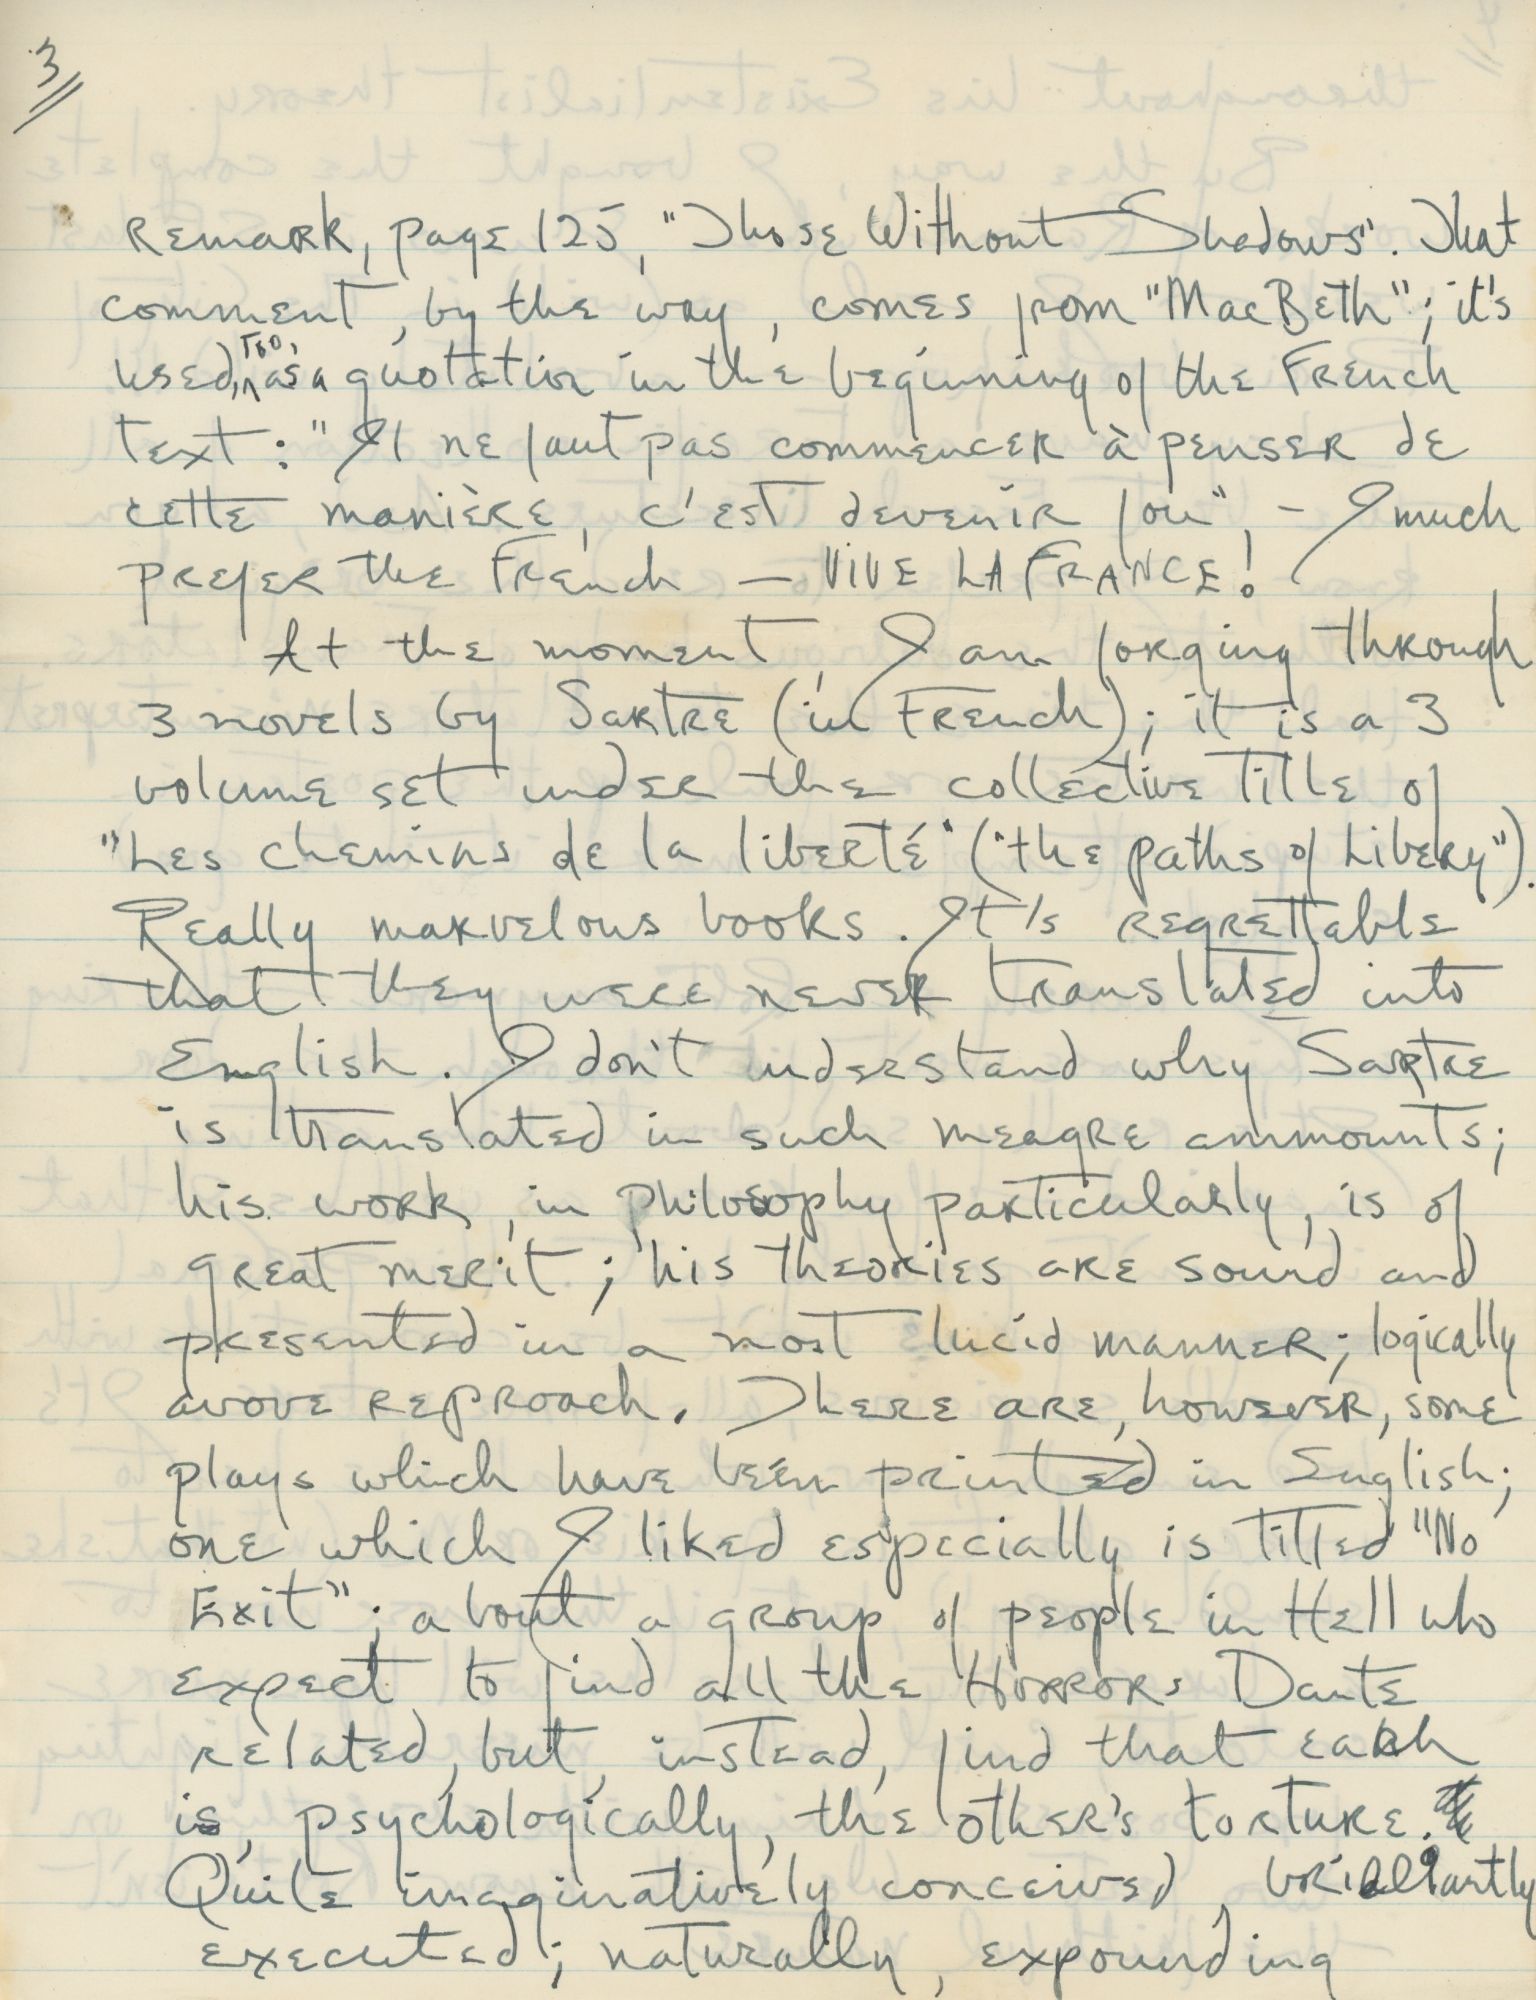 3
remark, page 125, "Those Without Shadows". That
comment, by the way, comes from "MacBeth"; it's
used, too, as a quotation in the beginning of the French
text: "Il ne faut pas commencer à penser de
cette manière, c'est devenir fou", - I much
prefer the French — VIVE LA FRANCE!
At the moment, I am forging through
3 novels by Sartre (in French); it is a 3
volume set under the collective title of
"Les chemins de la liberté" ("the paths of Libery").
Really marvelous books. It's regrettable
that they were never translated into
English. I don't understand why Sartre
is translated in such meagre ammounts;
his work, in philosophy particularly, is of
great merit; his theories are sound and
presented in a most lucid manner; logically
above reproach. There are, however, some
plays which have been printed in English;
one which I liked especially is titled "No
Exit"; about a group of people in Hell who
expect to find all the Horrors Dante
related, but, instead, find that each
is, psychologically, the other's torture.
Quite imaginatively conceived, brilliantly
executed; naturally, expounding